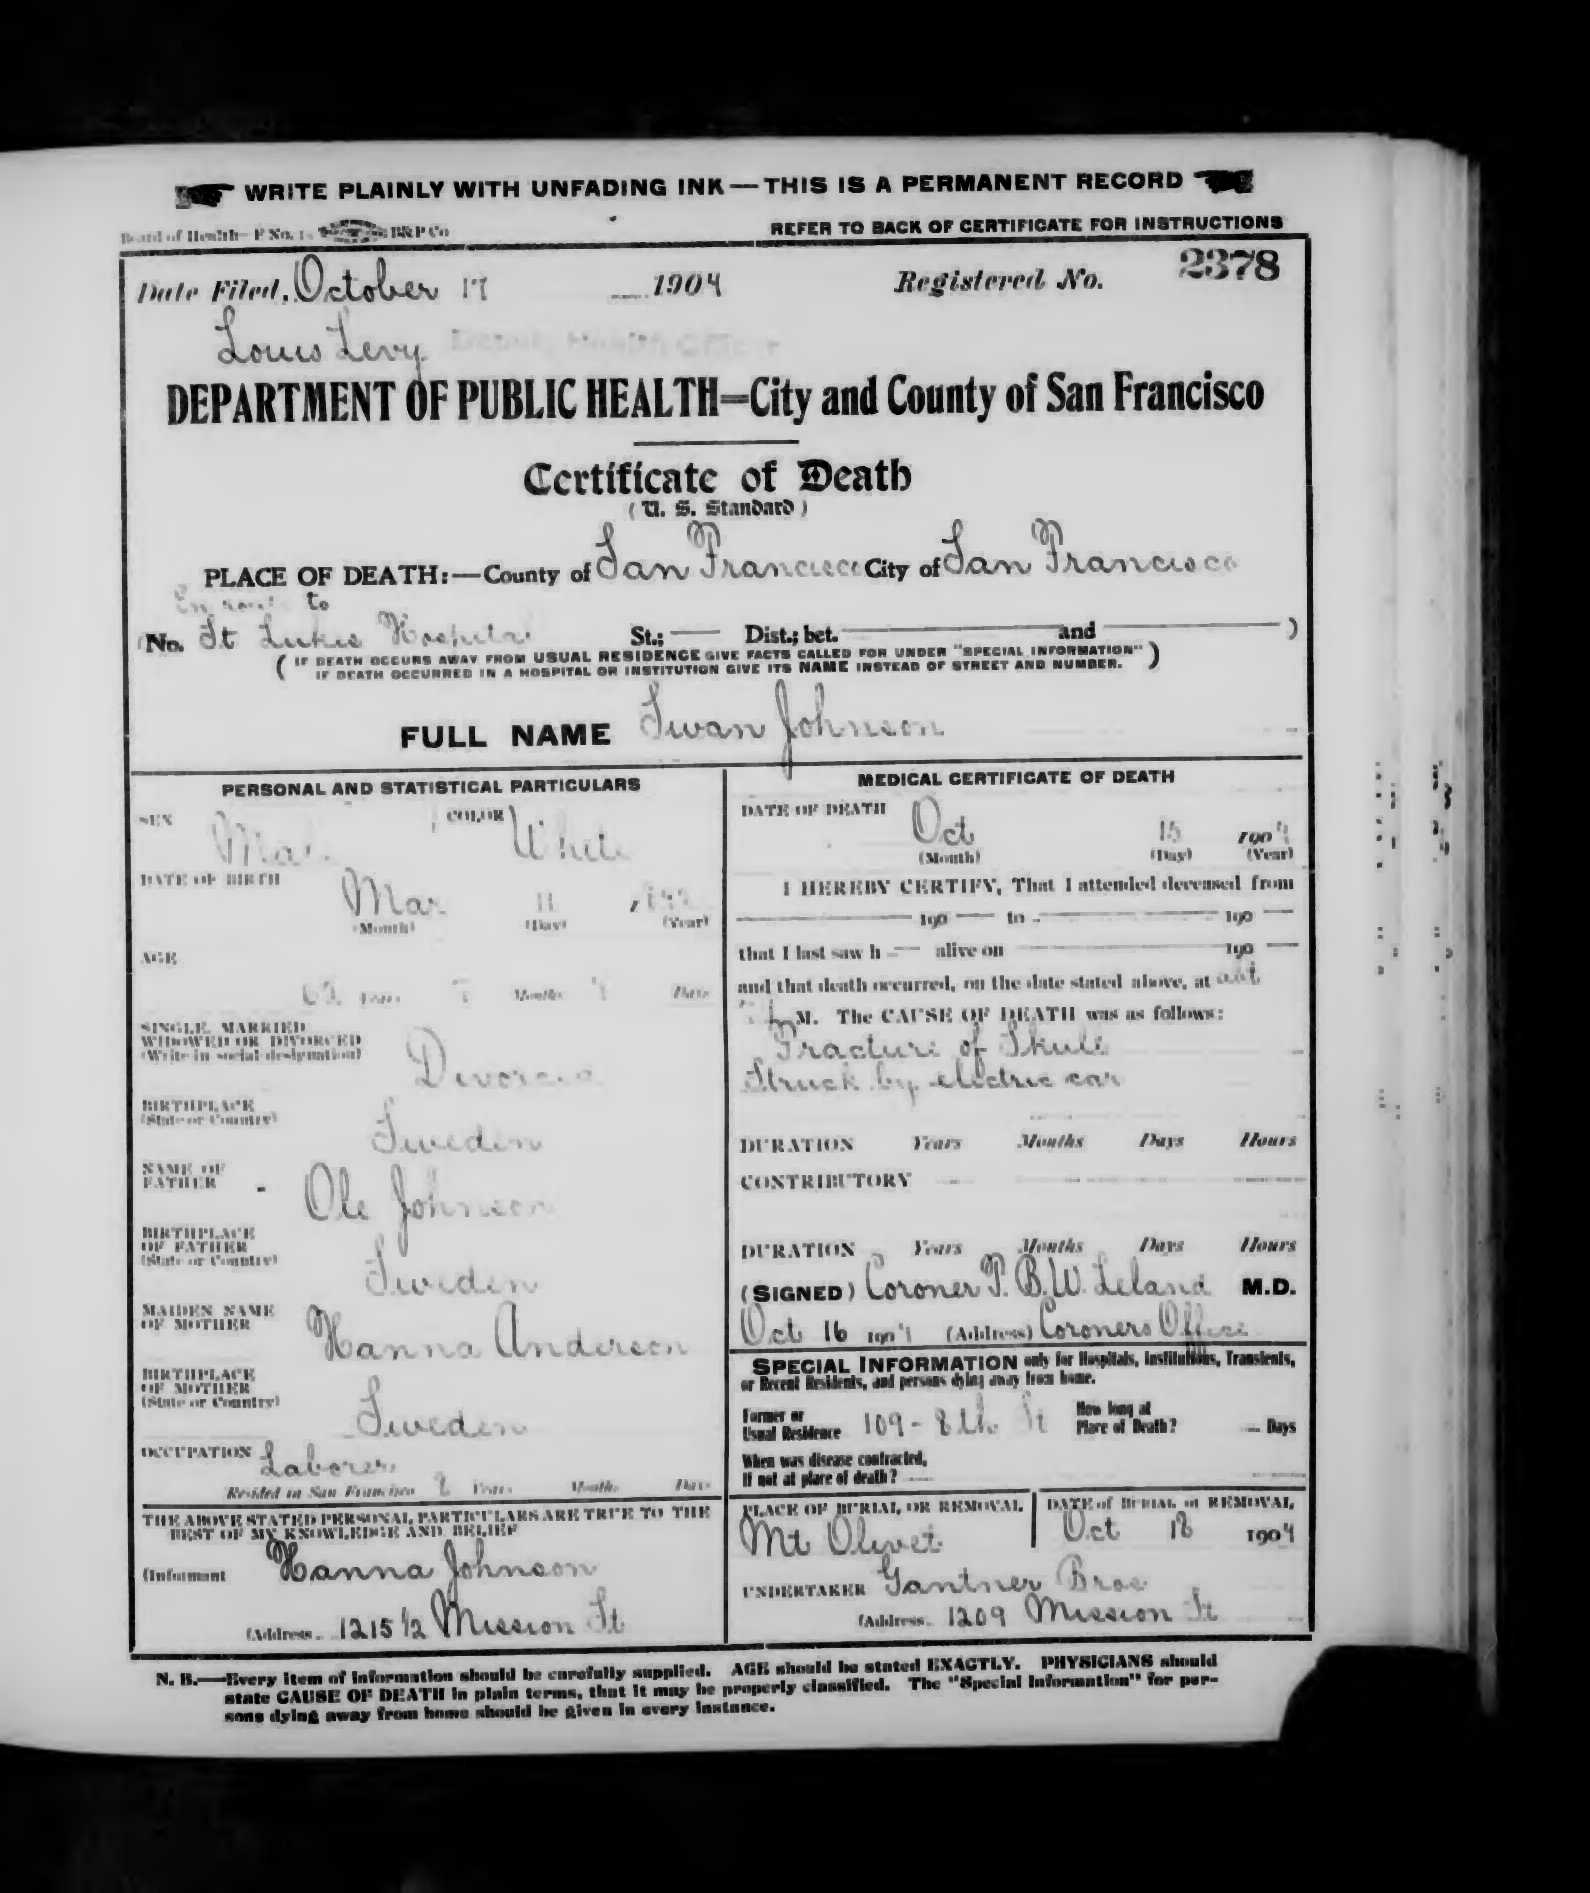 WRITE PLAINLY WITH UNFADING INK—THIS IS A PERMANENT RECORD
Board of Health—F No. B&P Co REFER TO BACK OF CERTIFICATE FOR INSTRUCTIONS
Date Filed, October 17 1904 Registered No. 2378
Louis Levy Deputy Health Officer
DEPARTMENT OF PUBLIC HEALTH=City and County of San Francisco
Certificate of Death
(U. S. Standard)
PLACE OF DEATH:—County of San Francisco City of San Francisco
En route to
(No. St Lukes Hospital St.; — Dist.; bet. — and — )
(IF DEATH OCCURS AWAY FROM USUAL RESIDENCE GIVE FACTS CALLED FOR UNDER "SPECIAL INFORMATION"
IF DEATH OCCURRED IN A HOSPITAL OR INSTITUTION GIVE ITS NAME INSTEAD OF STREET AND NUMBER.)
FULL NAME Swan Johnson
PERSONAL AND STATISTICAL PARTICULARS
SEX Male COLOR White
DATE OF BIRTH Mar 11
(Month) (Day) (Year)
AGE
Years Months Days
SINGLE, MARRIED,
WIDOWED OR DIVORCED
(Write in social designation) Divorced
BIRTHPLACE
(State or Country) Sweden
NAME OF
FATHER Ole Johnson
BIRTHPLACE
OF FATHER
(State or Country) Sweden
MAIDEN NAME
OF MOTHER Hanna Anderson
BIRTHPLACE
OF MOTHER
(State or Country) Sweden
OCCUPATION Laborer
Resided in San Francisco Years Months Days
THE ABOVE STATED PERSONAL PARTICULARS ARE TRUE TO THE
BEST OF MY KNOWLEDGE AND BELIEF
(Informant Hanna Johnson
(Address 1215 1/2 Mission St
MEDICAL CERTIFICATE OF DEATH
DATE OF DEATH Oct 15 1904
(Month) (Day) (Year)
I HEREBY CERTIFY, That I attended deceased from
— 190 — to — 190 —
that I last saw h — alive on — 190 —
and that death occurred, on the date stated above, at abt
M. The CAUSE OF DEATH was as follows:
Fracture of Skull
Struck by electric car
DURATION Years Months Days Hours
CONTRIBUTORY
DURATION Years Months Days Hours
(SIGNED) Coroner T. B. W. Leland M.D.
Oct 16 1904 (Address) Coroners Office
SPECIAL INFORMATION only for Hospitals, Institutions, Transients,
or Recent Residents, and persons dying away from home.
Former or
Usual Residence 109 - 8th St
How long at
Place of Death? — Days
When was disease contracted,
If not at place of death?
PLACE OF BURIAL OR REMOVAL
Mt Olivet
DATE of BURIAL or REMOVAL
Oct 18 1904
UNDERTAKER Gantner Bros
(Address 1209 Mission St
N. B.—Every item of information should be carefully supplied. AGE should be stated EXACTLY. PHYSICIANS should
state CAUSE OF DEATH in plain terms, that it may be properly classified. The "Special Information" for per-
sons dying away from home should be given in every instance.